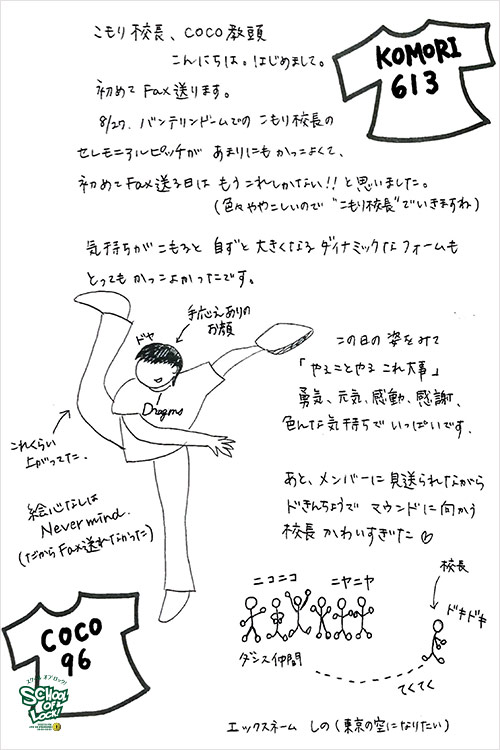 こもり校長、COCO教頭
こんにちは。はじめまして。
KOMORI
613
初めてFax送ります。
8/27. バンテリンドームでの こもり校長の
セレモニアルピッチが あまりにも かっこよくて、
初めてFax送る日は もうこれしかない!! と思いました。
(色々ややこしいので "こもり校長"でいきますね)
気持ちがこもると 自ずと大きくなる ダイナミックな フォームも
とっても かっこよかったです。
手応えありの
お顔
ドヤ
Dragons
これくらい
上がってた。
この日の 姿をみて
「やることやる これ大事」
勇気、元気、感動、感謝、
色んな気持ちで いっぱいです。
絵心なしは
Nevermind.
(だからFax送れなかった)
あと、メンバーに 見送られながら
ドきんちょうで マウンドに向かう
校長 かわいすぎた♡
校長
ニコニコ
ニヤニヤ
ドキドキ
ダンス仲間
てくてく
COCO
96
スクール オブ ロック!
SCHOOL
OF
LOCK!
エックスネーム しの (東京の空になりたい)